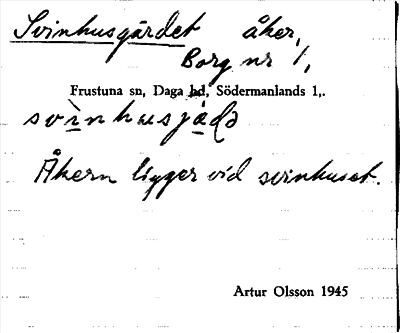 Svinhusgärdet åker,
Borg nr 1,
Frustuna sn, Daga hd, Södermanlands l,.
svìnhusjàḍə
Åkern ligger vid svinhuset.
Artur Olsson 1945